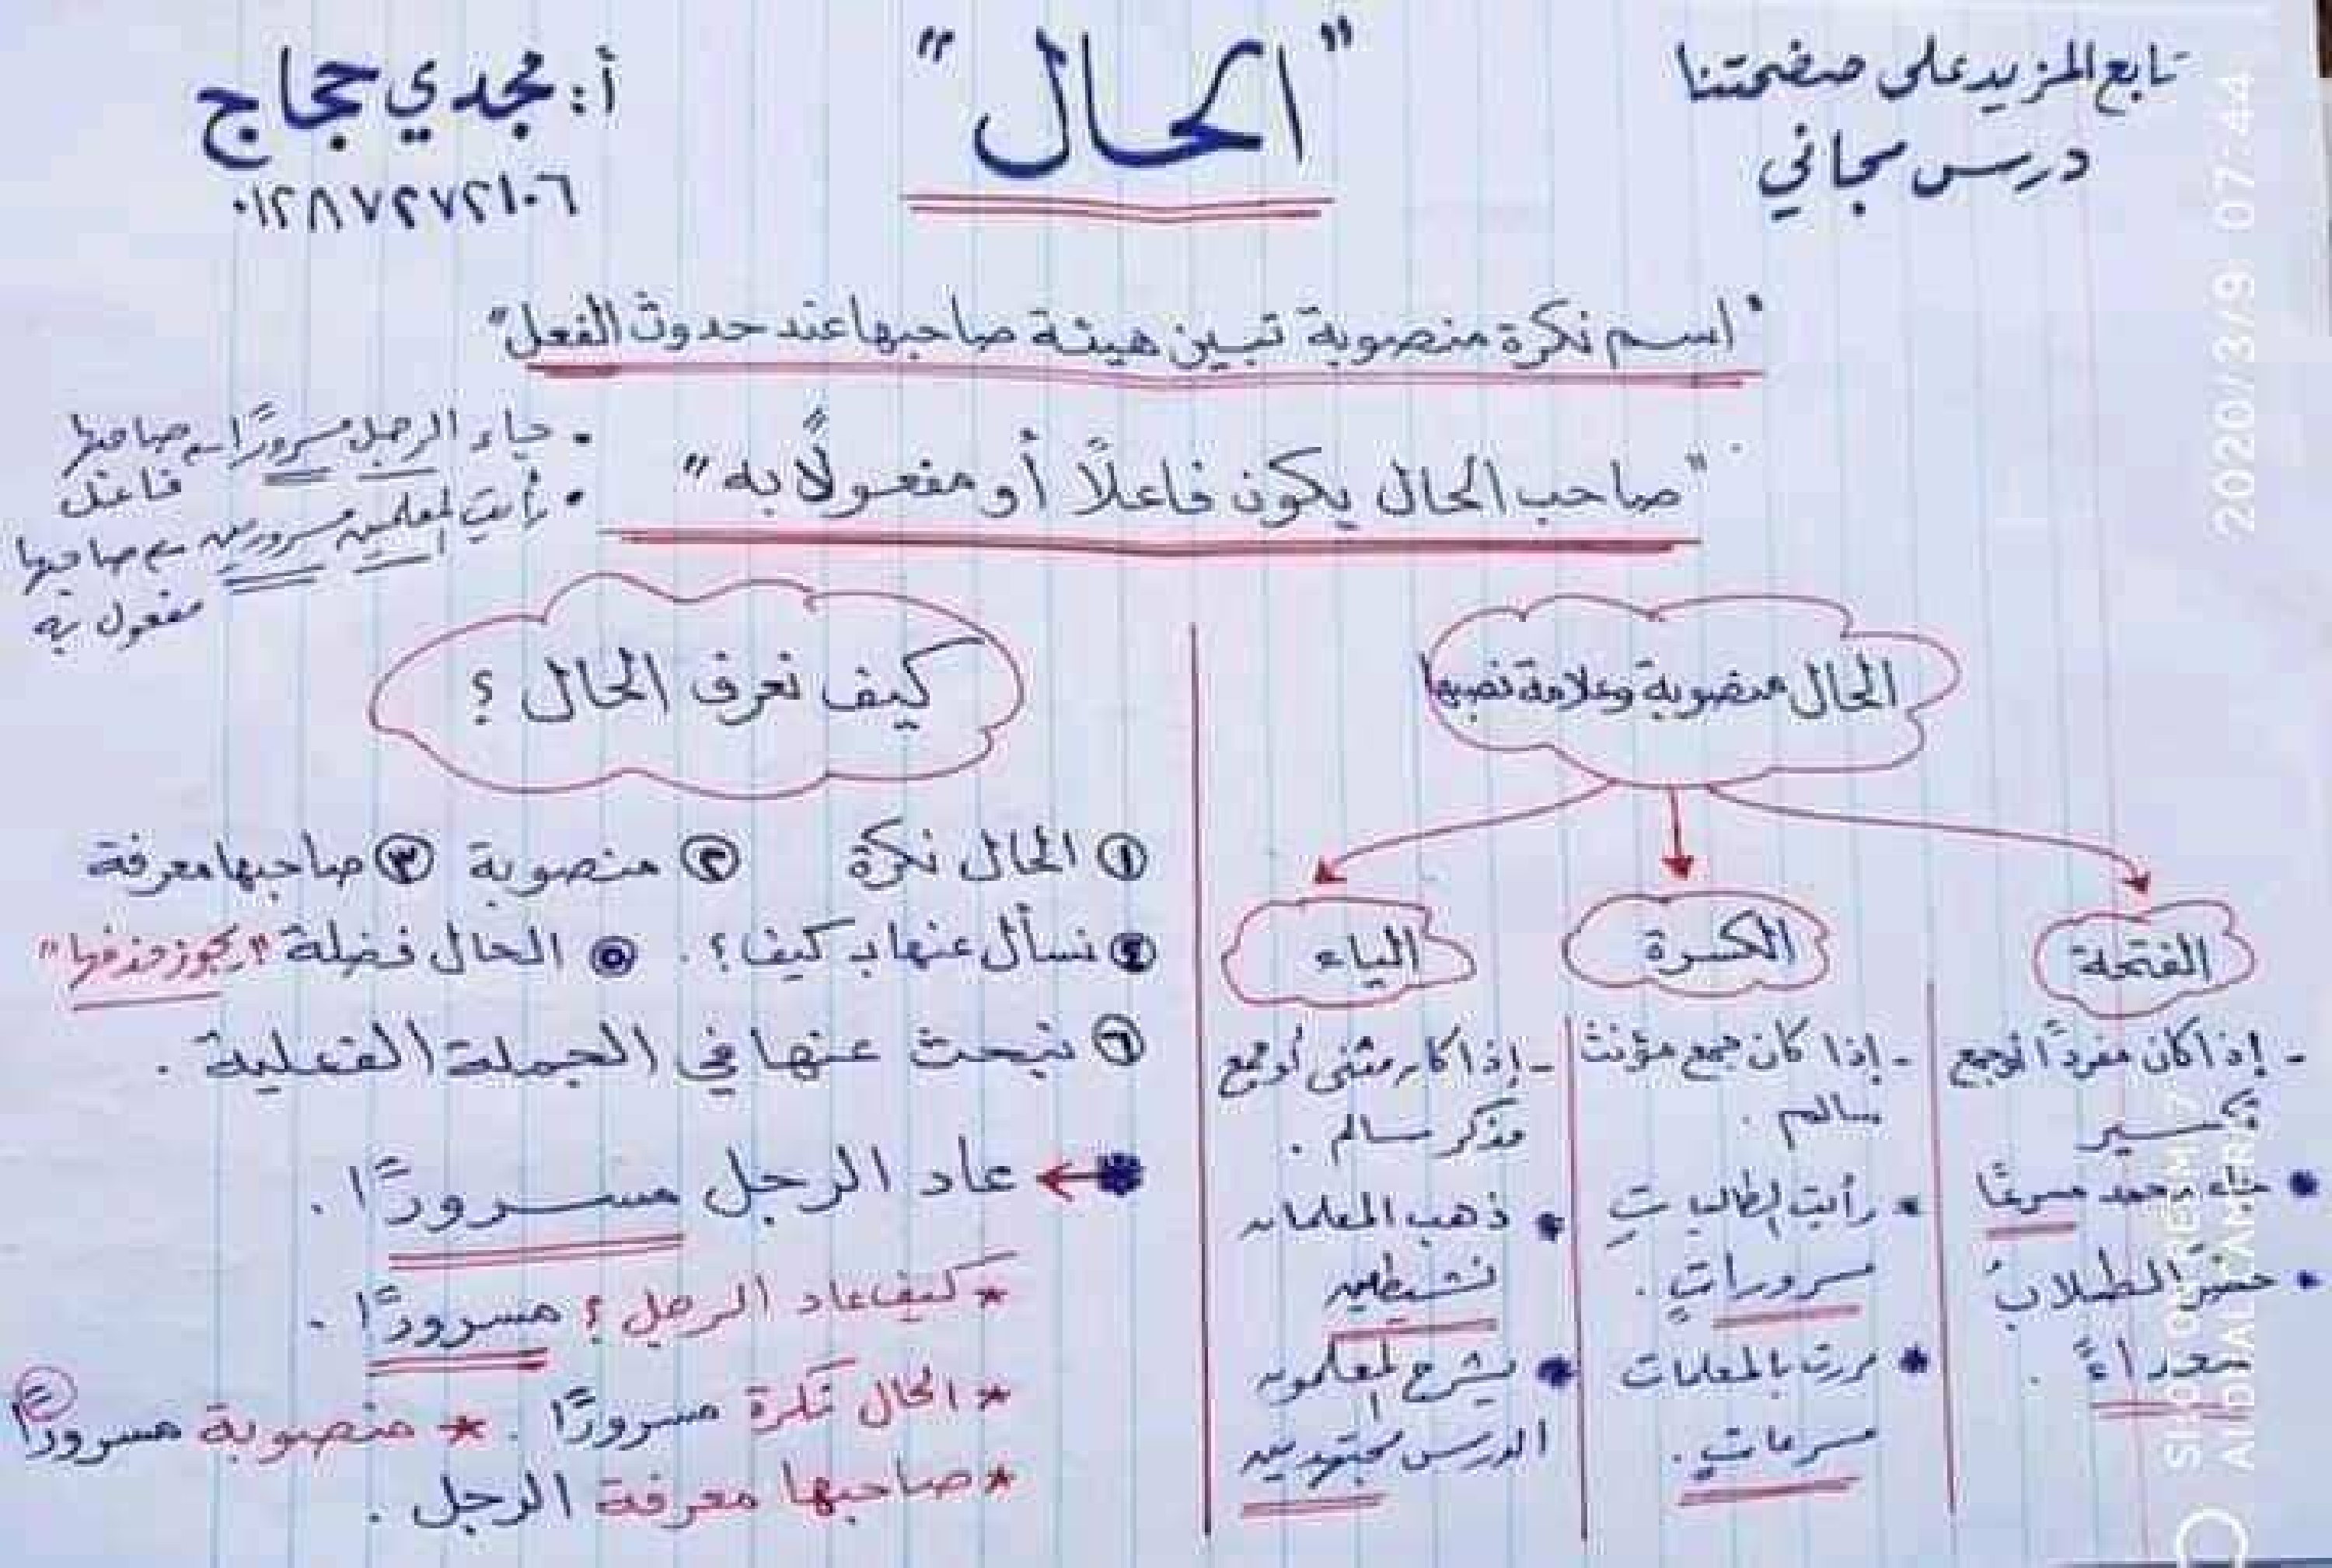 تابع المزيد على صفحتنا
درس مجاني
"الحال"
أ: مجدي حجاج
٠١٢٨٧٢٧٢١٠٦
"اسم نكرة منصوبة تبين هيئة صاحبها عند حدوث الفعل"
"صاحب الحال يكون فاعلًا أو مفعولًا به"
• جاء الرجل مسرورًا صاحبها
فاعل
• رأيت المعلمين مسرورين صاحبها
مفعول به
الحال منصوبة وعلامة نصبها
الفتحة
- إذا كان مفردًا أو جمع
تكسير
• جاء محمد مسرعًا
• حضر الطلابُ
سعداءً .
الكسرة
- إذا كان جمع مؤنث
سالم .
• رأيت الطالباتِ
مسروراتٍ .
• مررت بالمعلمات
مسرعاتٍ .
الياء
- إذا كان مثنى أو جمع
مذكر سالم .
• ذهب المعلمان
نشيطين
• يشرح المعلمون
الدرس مجتهدين
كيف نعرف الحال ؟
① الحال نكرة ② منصوبة ③ صاحبها معرفة
④ نسأل عنها بـ كيف؟ . ⑤ الحال فضلة "يجوز حذفها"
⑥ نبحث عنها في الجملة الفعلية .
* ← عاد الرجل مسرورًا .
* كيف عاد الرجل ؟ مسرورًا .
* الحال نكرة مسرورًا . * منصوبة مسرورًا
* صاحبها معرفة الرجل .
2020/3/9 07:44
SHOT ON REDMI 7
AI DUAL CAMERA